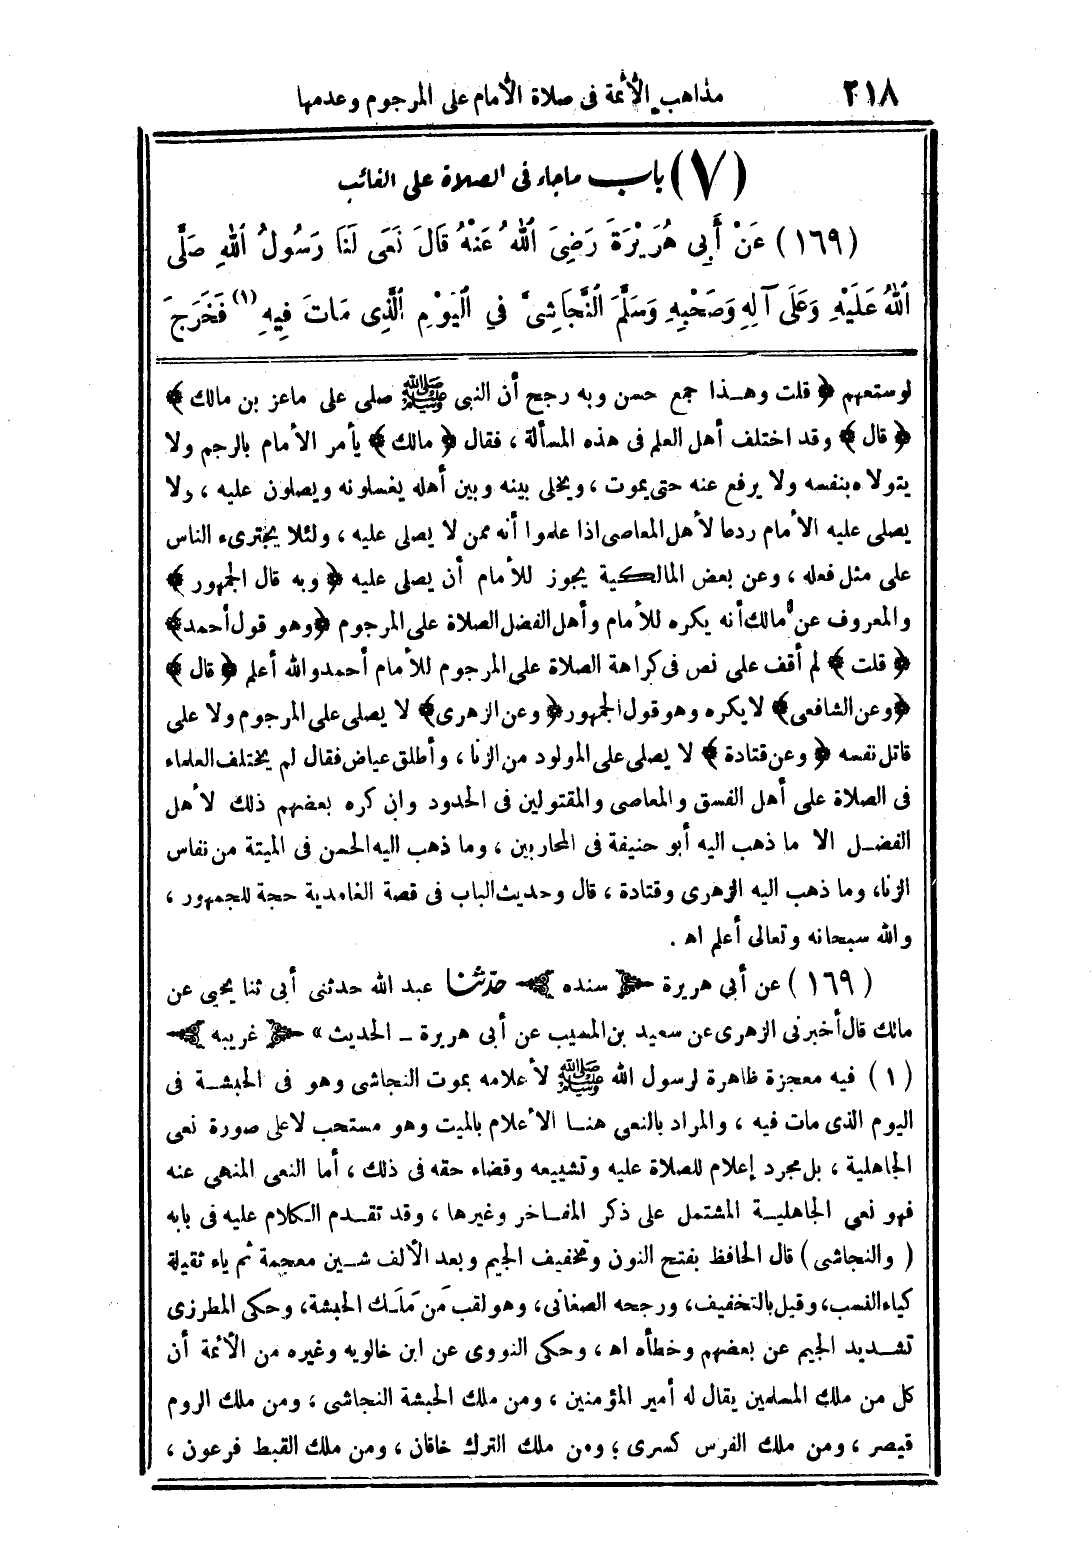 ٢١٨ مذاهب الأئمة فى صلاة الأمام على المرجوم وعدمها
(٧) باب ماجاء فى الصلاة على الغائب
(١٦٩) عَنْ أَبِى هُرَيْرَةَ رَضِىَ اللهُ عَنْهُ قَالَ نَعَى لَنَا رَسُولُ اللهِ صَلَّى
اللهُ عَلَيْهِ وَعَلَى آلِهِ وَصَحْبِهِ وَسَلَّمَ النَّجَاشِىَّ فِي الْيَوْمِ الَّذِى مَاتَ فِيهِ (١) فَخَرَجَ
لوستعهم ﴿ قلت وهذا جمع حسن وبه رجح أن النبى ﷺ صلى على ماعز بن مالك ﴾
﴿ قال ﴾ وقد اختلف أهل العلم فى هذه المسألة ، فقال ﴿ مالك ﴾ يأمر الأمام بالرجم ولا
يتولاه بنفسه ولا يرفع عنه حتى يموت ، ويخلى بينه وبين أهله يغسلونه ويصلون عليه ، ولا
يصلى عليه الأمام ردعا لأهل المعاصى اذا علموا أنه ممن لا يصلى عليه ، ولئلا يجترىء الناس
على مثل فعله ، وعن بعض المالكية يجوز للأمام أن يصلى عليه ﴿ وبه قال الجمهور ﴾
والمعروف عن مالك أنه يكره للأمام وأهل الفضل الصلاة على المرجوم ﴿ وهو قول أحمد ﴾
﴿ قلت ﴾ لم أقف على نص فى كراهة الصلاة على المرجوم للأمام أحمد والله أعلم ﴿ قال ﴾
﴿ وعن الشافعى ﴾ لا يكره وهو قول الجمهور ﴿ وعن الزهرى ﴾ لا يصلى على المرجوم ولا على
قاتل نفسه ﴿ وعن قتادة ﴾ لا يصلى على المولود من الزنا ، وأطلق عياض فقال لم يختلف العلماء
فى الصلاة على أهل الفسق والمعاصى والمقتولين فى الحدود وان كره بعضهم ذلك لأهل
الفضل الا ما ذهب اليه أبو حنيفة فى المحاربين ، وما ذهب اليه الحسن فى الميتة من نفاس
الزنا، وما ذهب اليه الزهرى وقتادة ، قال وحديث الباب فى قصة الغامدية حجة للجمهور ،
والله سبحانه وتعالى أعلم اه .
(١٦٩) عن أبي هريرة ﴿ سنده ﴾ حدّثنا عبد الله حدثنى أبى ثنا يحيى عن
مالك قال أخبرنى الزهرى عن سعيد بن المسيب عن أبى هريرة ـ الحديث » ﴿ غريبه ﴾
(١) فيه معجزة ظاهرة لرسول الله ﷺ لأعلامه بموت النجاشى وهو فى الحبشة فى
اليوم الذى مات فيه ، والمراد بالنعي هنا الأعلام بالميت وهو مستحب لاعلى صورة نعى
الجاهلية ، بل مجرد إعلام للصلاة عليه وتشييعه وقضاء حقه فى ذلك ، أما النعى المنهى عنه
فهو نعي الجاهلية المشتمل على ذكر المفاخر وغيرها ، وقد تقدم الكلام عليه فى بابه
( والنجاشى ) قال الحافظ بفتح النون وتخفيف الجيم وبعد الألف شين معجمة ثم ياء ثقيلة
كياء النسب، وقيل بالتخفيف، ورجحه الصغانى، وهو لقب مَن مَلَك الحبشة، وحكى المطرزى
تشديد الجيم عن بعضهم وخطأه اه ، وحكى النووى عن ابن خالويه وغيره من الأئمة أن
كل من ملك المسلمين يقال له أمير المؤمنين ، ومن ملك الحبشة النجاشى ، ومن ملك الروم
قيصر ، ومن ملك الفرس كسرى ، ومن ملك الترك خاقان ، ومن ملك القبط فرعون ،